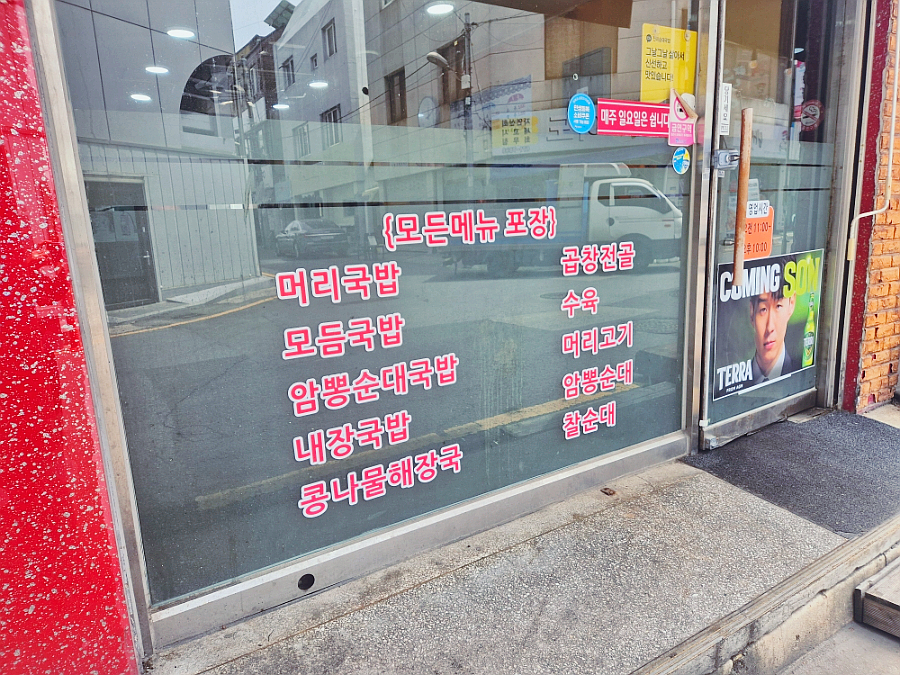 {모든메뉴 포장}
머리국밥
모듬국밥
암뽕순대국밥
내장국밥
콩나물해장국
곱창전골
수육
머리고기
암뽕순대
찰순대
그날그날 삶아서
신선하고
맛있습니다
매주 일요일은 쉽니다
금연구역
영업시간
오전 11:00~
오후 10:00
COMING SON
TERRA